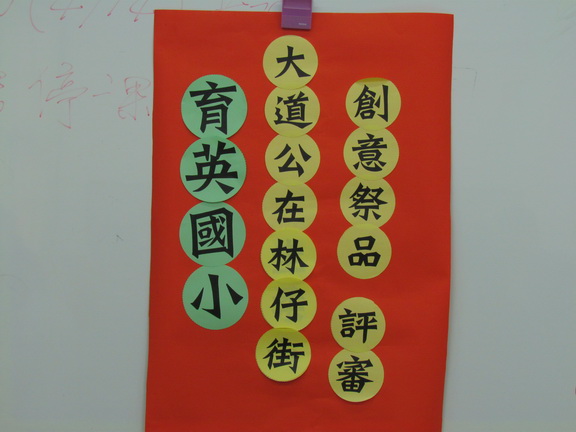 育英國小
大道公在林仔街
創意祭品 評審
停課